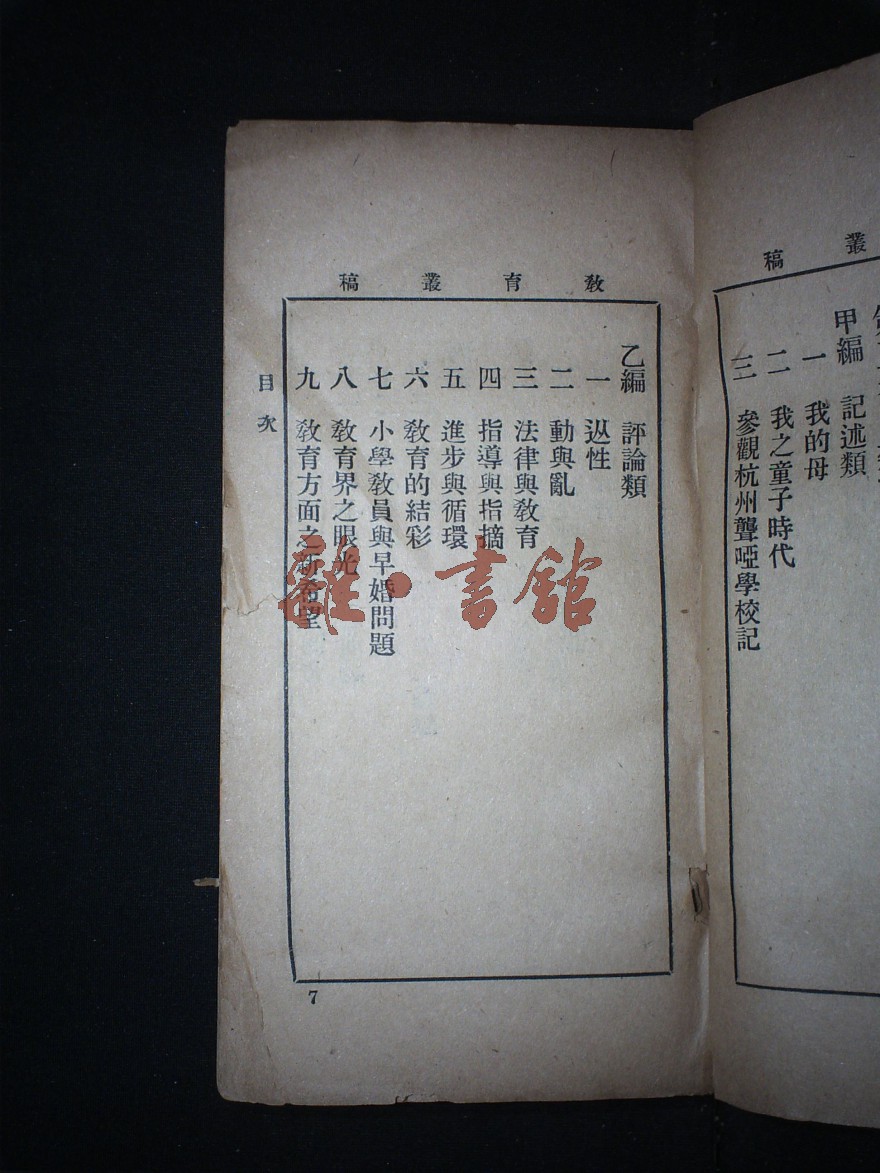 叢稿
甲編 記述類
一 我的母
二 我之童子時代
三 參觀杭州聾啞學校記
教育叢稿
乙編 評論類
一 性
二 動與亂
三 法律與教育
四 指導與指摘
五 進步與循環
六 教育的結彩
七 小學教員與早婚問題
八 教育界之眼光
九 教育方面之新希望
目次
7
雜·書館